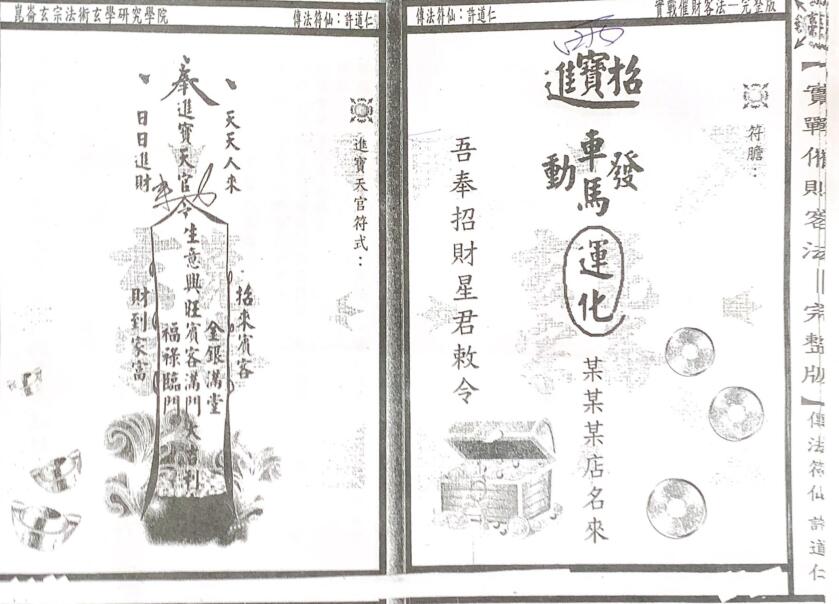 實戰催財客法—完整版
傳法符仙：許道仁
符膽：
招
寶
進
車馬
發
動
運化
某某某店名來
吾奉招財星君敕令
傳法符仙：許道仁
崑崙玄宗法術玄學研究學院
進寶天官符式：
天天人來
奉進寶天官令
日日進財
招來賓客
金銀滿堂
生意興旺賓客滿門大吉利
福祿臨門
財到家富
【實戰催財客法——完整版】傳法符仙 許道仁